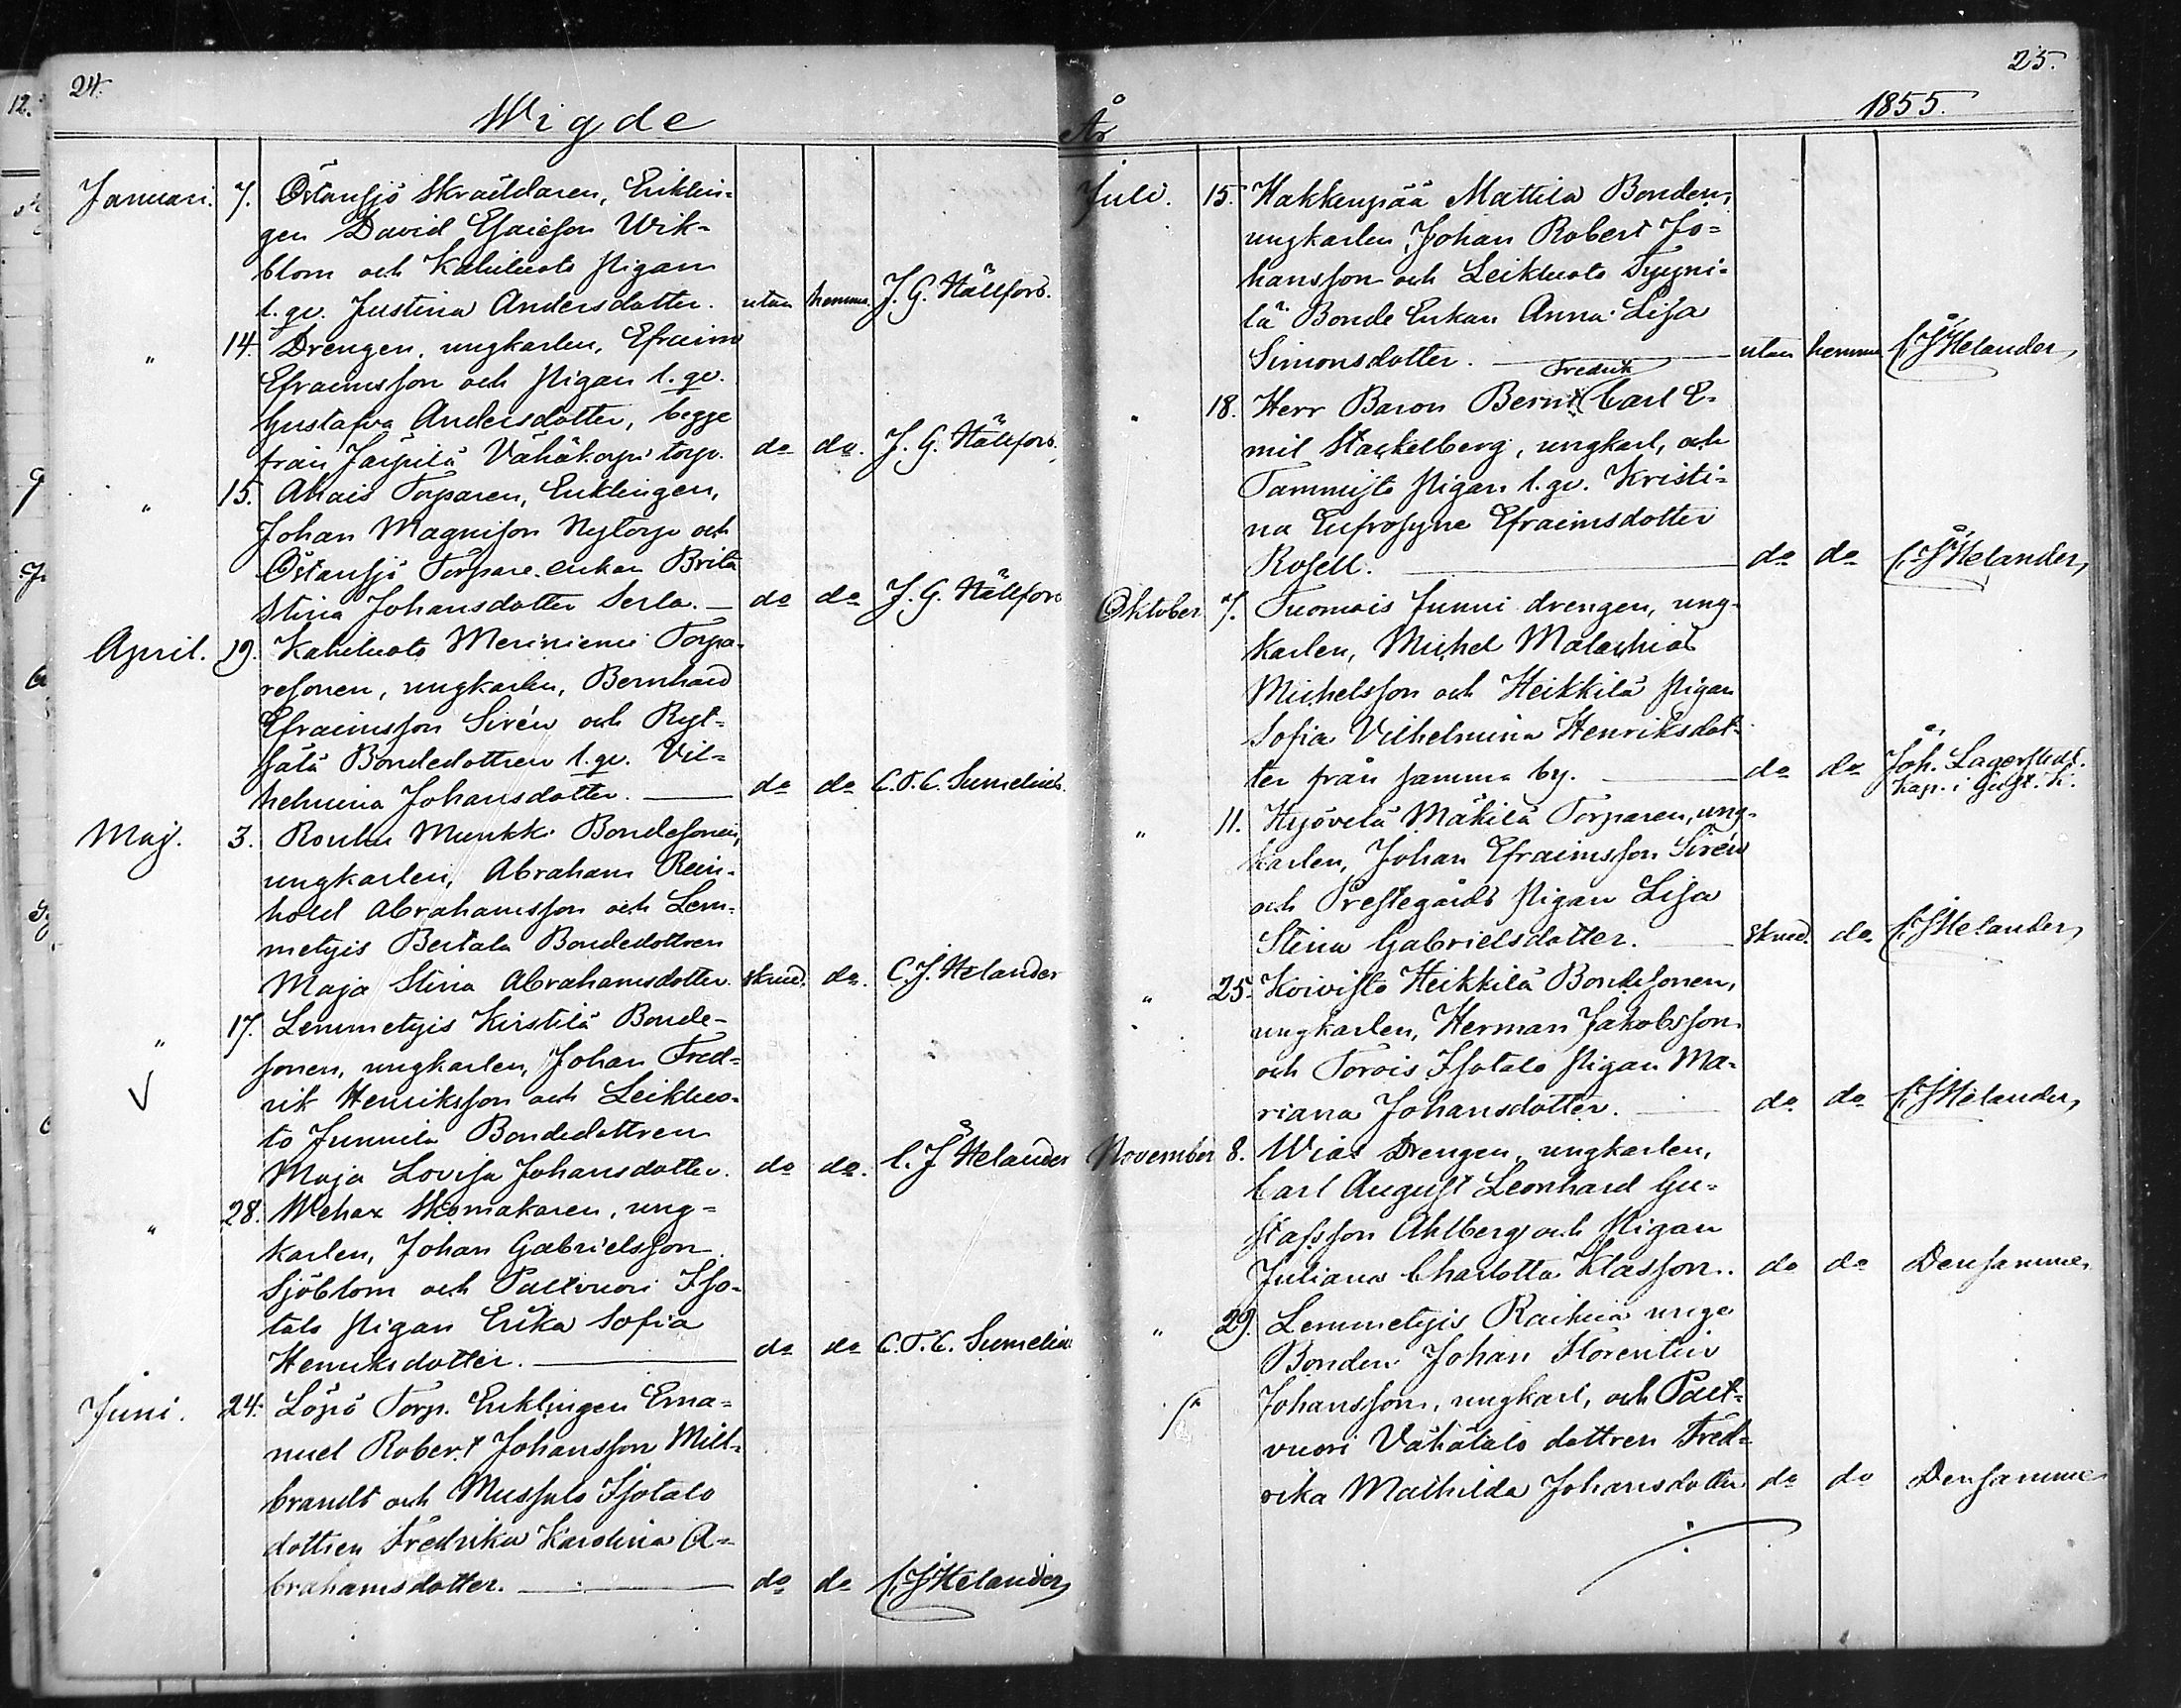 24.
Wigde
Januari. 7. Östansjö Skräddaren, Enklin-
gen David Esaiesson Wik-
blom och Kahiluoto pigan
l. qv. Justina Andersdotter. utan hemma. J. G. Hällfors.
" 14. Drengen, ungkarlen, Efraim
Efraimsson och pigan l. qv.
Gustafva Andersdotter, begge
från Järpilä Vähäkorpi torp. do do. J. G. Hällfors.
" 15. Ahais Torparen, Enklingen,
Johan Magnisson Nytorp och
Östansjö Torpare enkan Brita
Stina Johansdotter Serlo. — do do J. G. Hällfors
April. 19. Kahiluoto Meriniemi Torpa-
resonen, ungkarlen, Bernhard
Efraimsson Sirén och
Bondedottren l. qv. Vil-
helmina Johansdotter. — do do C. T. C. Sumelius.
Maj. 3. Rouhu Munkki Bondesonen,
ungkarlen, Abraham Rein-
hold Abrahamsson och Lem-
metyis Bertala Bondedottren
Maja Stina Abrahamsdotter. skrud. do. C. J. Helander
" 17. Lemmetyis Kirstilä Bonde-
sonen, ungkarlen, Johan Fred-
rik Henriksson och Leikluo-
to Junnila Bondedottren
Maja Lovisa Johansdotter. do do. C. J. Helander
" 28. Wehax Skomakaren, ung-
karlen, Johan Gabrielsson
Sjöblom och Paltvuori Iso-
talo pigan Erika Sofia
Henriksdotter. — do do C. T. C. Sumelius
Juni. 24. Löpö Torp. Enklingen Ema-
nuel Robert Johansson Mill-
brandt och Mussalo Isotalo
dottren Fredrika Karolina A-
brahamsdotter. — do do C. J. Helander
25.
År 1855.
Juli. 15. Hakkenpää Mattila Bonden,
ungkarlen, Johan Robert Jo-
hansson och Leikluoto Tyyni-
lä Bonde Enkan Anna Lisa
Simonsdotter. — utan hemma C. J. Helander
Fredrik
" 18. Herr Baron Bernt Carl E-
mil Stackelberg, ungkarl, och
Tammisto pigan l. qv. Kristi-
na Eufrosyne Efraimsdotter
Rosell. — do do C. J. Helander
Oktober 7. Tuomois Junni drengen, ung-
karlen, Michel Malachias
Michelsson och Heikkilä pigan
Sofia Vilhelmina Henriksdot-
ter från samma by. — do do Joh. Lagerstedt.
Kap. i Gust. K.
" 11. Hyövelä Mäkilä Torparen, ung-
karlen, Johan Efraimsson Sirén
och Prestegårds pigan Lisa
Stina Gabrielsdotter. — Skrud. do. C. J. Helander
" 25. Koivisto Heikkilä Bondesonen,
ungkarlen, Herman Jakobsson
och Torois Isotalo pigan Ma-
riana Johansdotter. — do do C. J. Helander
November 8. Wias Drengen, ungkarlen,
Carl August Leonhard Gu-
stafsson Ahlberg och Pigan
Juliana Charlotta Klasson. do do Densamme
" 29. Lemmetyis Raikua unge
Bonden Johan Florentin
Johansson, ungkarl, och Palt-
vuori Vähätalo dottren Fred-
rika Mathilda Johansdotter do do Densamme